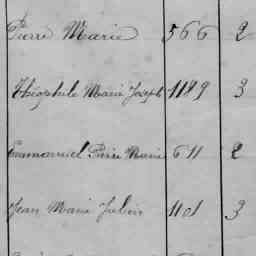 Pierre Marie 566 2
Théophile Marie Joseph 1189 3
Emmanuel Pierre Marie 611 2
Jean Marie Julien 1101 3